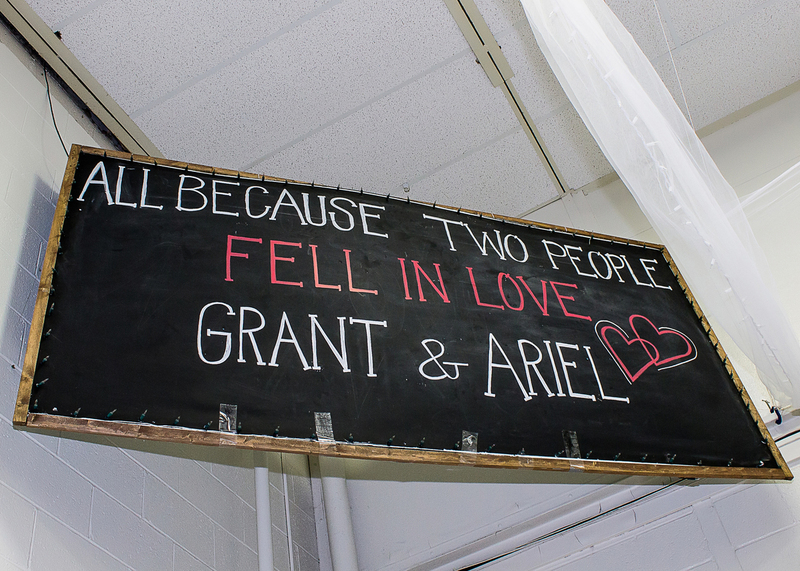 ALL BECAUSE TWO PEOPLE
FELL IN LOVE
GRANT & ARIEL